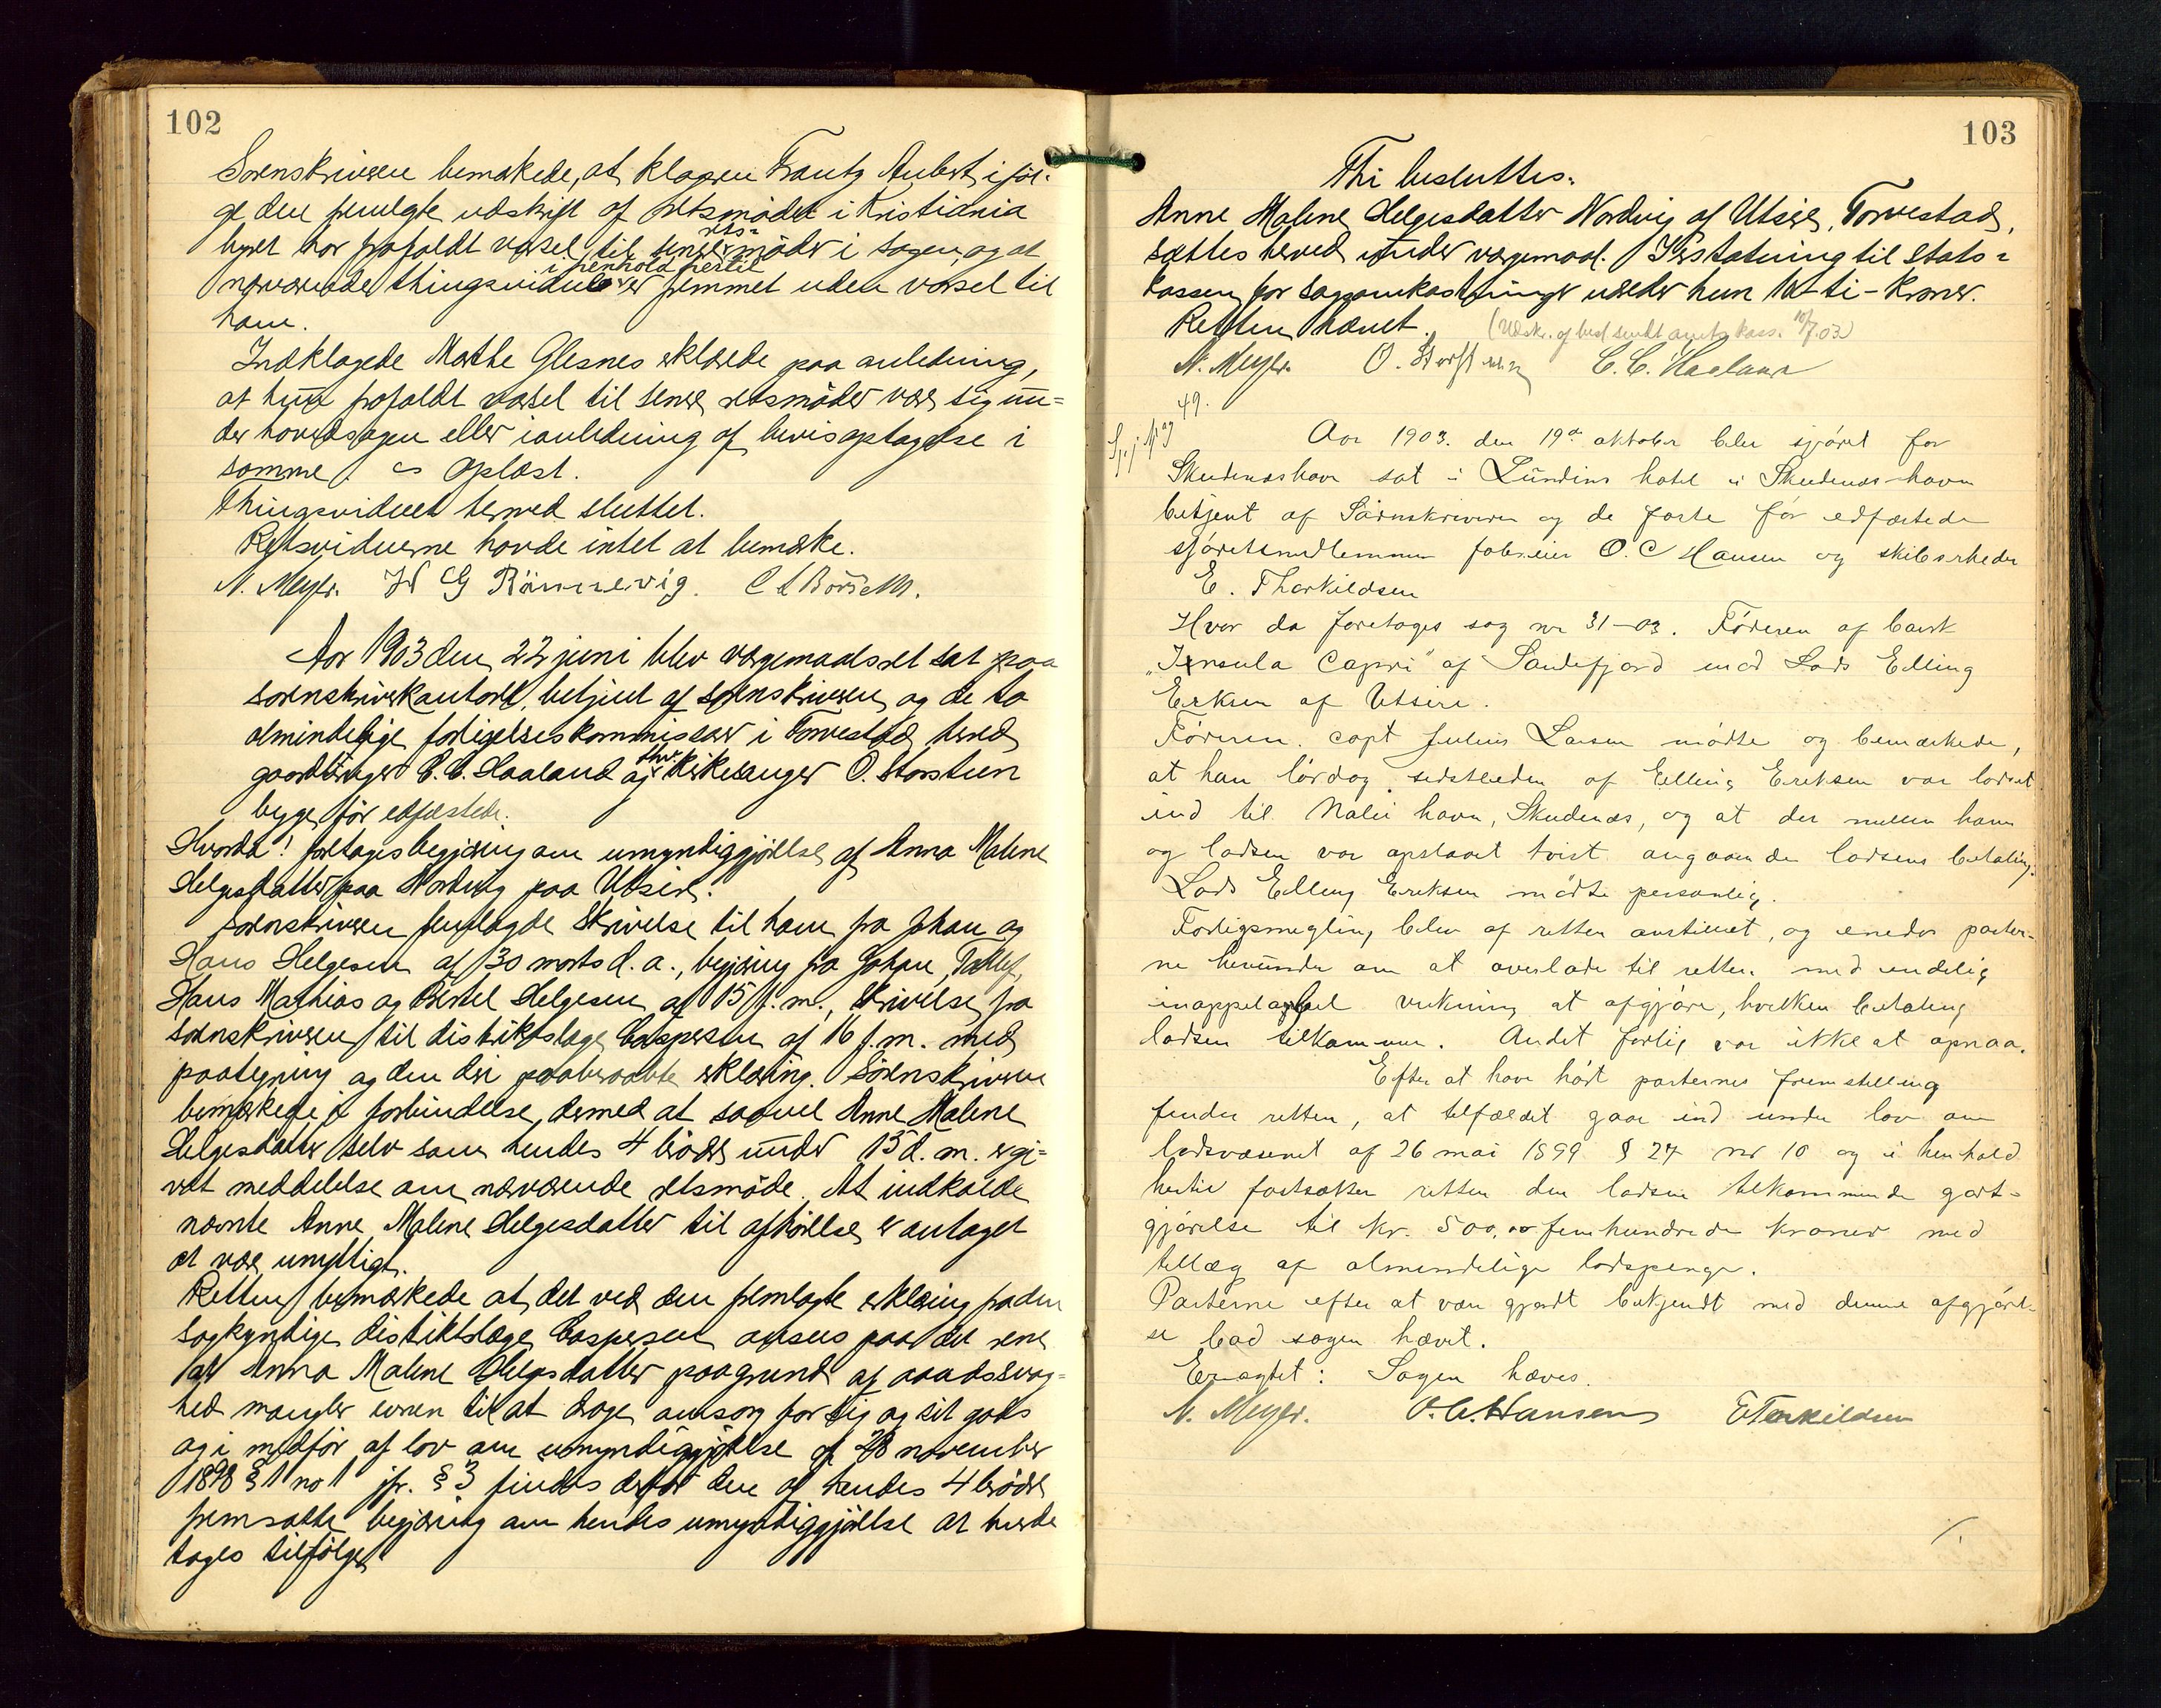 102
Sorenskriveren bemærkede, at klageren Frantz Aubert, iføl-
ge den fremlagte udskrift af retsmödet i Kristiania
byret har frafaldt varsel til senere rets-møder i sagen, og at
nærværende thingsvidne i henhold hertil er fremmet uden varsel til
ham.
Indklagede Marthe Glesnes erklærede paa anledning,
at hun frafaldt varsel til senere retsmöder være sig un=
der hovedsagen eller i anledning af bevisoptagelse i
samme. Oplæst.
Thingsvidnet hermed sluttet.
Retsvidnerne havde intet at bemærke.
N. Meyer. W G Rönnevig.
Aar 1903 den 22 juni blev værgemaadsret sat paa
sorenskriverkontoret, betjent af sorenskriveren og de to
almindelige forligelseskommissærer i Torvestad herred
gaardbruger C. C. Haaland og fhv. kirkesanger O. Storsteen
begge för edfæstede.
Hvorda! foretages begjæring om umyndiggjörelse af Anna Malene
Helgesdatter paa Nordvig paa Utsire.
Sorenskriveren fremlagde skrivelse til ham fra Johan og
Hans Helgesen af 30 marts d. a., begjæring fra Johan, Tollef,
Hans Mathias og Bertel Helgesen af 15 f. m., skrivelse fra
sorenskriveren til distriktslæge Caspersen af 16 f. m. med
paategning og den deri paaberaabte erklæring. Sörenskriveren
bemærkede i forbindelse dermed at saavel Anne Malene
Helgesdatter selv som hendes 4 brödre under 15 d. m. er gi=
vet meddelelse om nærværende retsmöde. At indkalde
nævnte Anne Malene Helgesdatter til afhörelse er antaget
at være unyttigt.
Retten bemærkede at det ved den fremlagte erklæring fra den
sagkyndige distriktslæge Caspersen ansees paa det rene
at Anna Malene Helgesdatter paagrund af aandssvag=
hed mangler evnen til at drage omsorg for sig og sit gods
og i medför af lov om umyndiggjörelse af 28 november
1898 § 1 no 1 jfr. § 3 findes derfor den af hendes 4 brödre
fremsatte begjæring om hendes umyndiggjörelse at burde
tages tilfölge
103
Thi besluttes:
Anne Malene Helgesdatter Nordvig af Utsire, Torvestad,
sættes herved under værgemaal. I erstatning til Stats=
kassen for sagsomkostninger udreder hun 10-ti-kroner.
Retten hævet. (Udskr. af besl sendt amtets kass. 10/7.03)
N. Meyer. O. Storsteen C. C. Haaland
49.
Aar 1903. den 19de oktober blev sjöret for
Skudeneshavn sat i Lundins hotel i Skudenes-havn
betjent af Sörnskriveren og de faste för edfæstede
sjöretsmedlemmer fabreier O. C Hansen og skibsrheder
E. Tharkildsen
Hvor da foretoges sag nr 31-03. Föreren af bark
"Insula Capri" af Sandefjord mod Lods Elling
Eriksen af Utsire.
Föreren. capt Julius Larsen mödte og bemærkede,
at han lördag sidstleden af Elling Eriksen var lodset
ind til Malei havn, Skudenæs, og at der mellem ham
og lodsen var opstaaet tvist angaaende lodsens betaling.
Lods Elling Eriksen mödte personlig.
Forligsmegling blev af retten anstillet, og enedes parter-
ne herunder om at overlade til retten med endelig
inappelabel virkning at afgjöre, hvilken betaling
lodsen tilkommer. Andet forlig var ikke at opnaa.
Efter at have hört parternes fremstilling
finder retten, at tilfældet gaar ind under lov om
lodsvæsenet af 26 mai 1899 § 27 nr 10 og i henhold
hertil fastsætter retten den lodsen tilkommende godt-
gjörelse til kr. 500,00 femhundrede kroner med
tillæg af almindelige lodspenge.
Parterne efter at være gjordt bekjendt med denne afgjörel-
se bad sagen hævet.
Eragtet: Sagen hæves.
N. Meyer. O. C. Hansen E Torkildsen